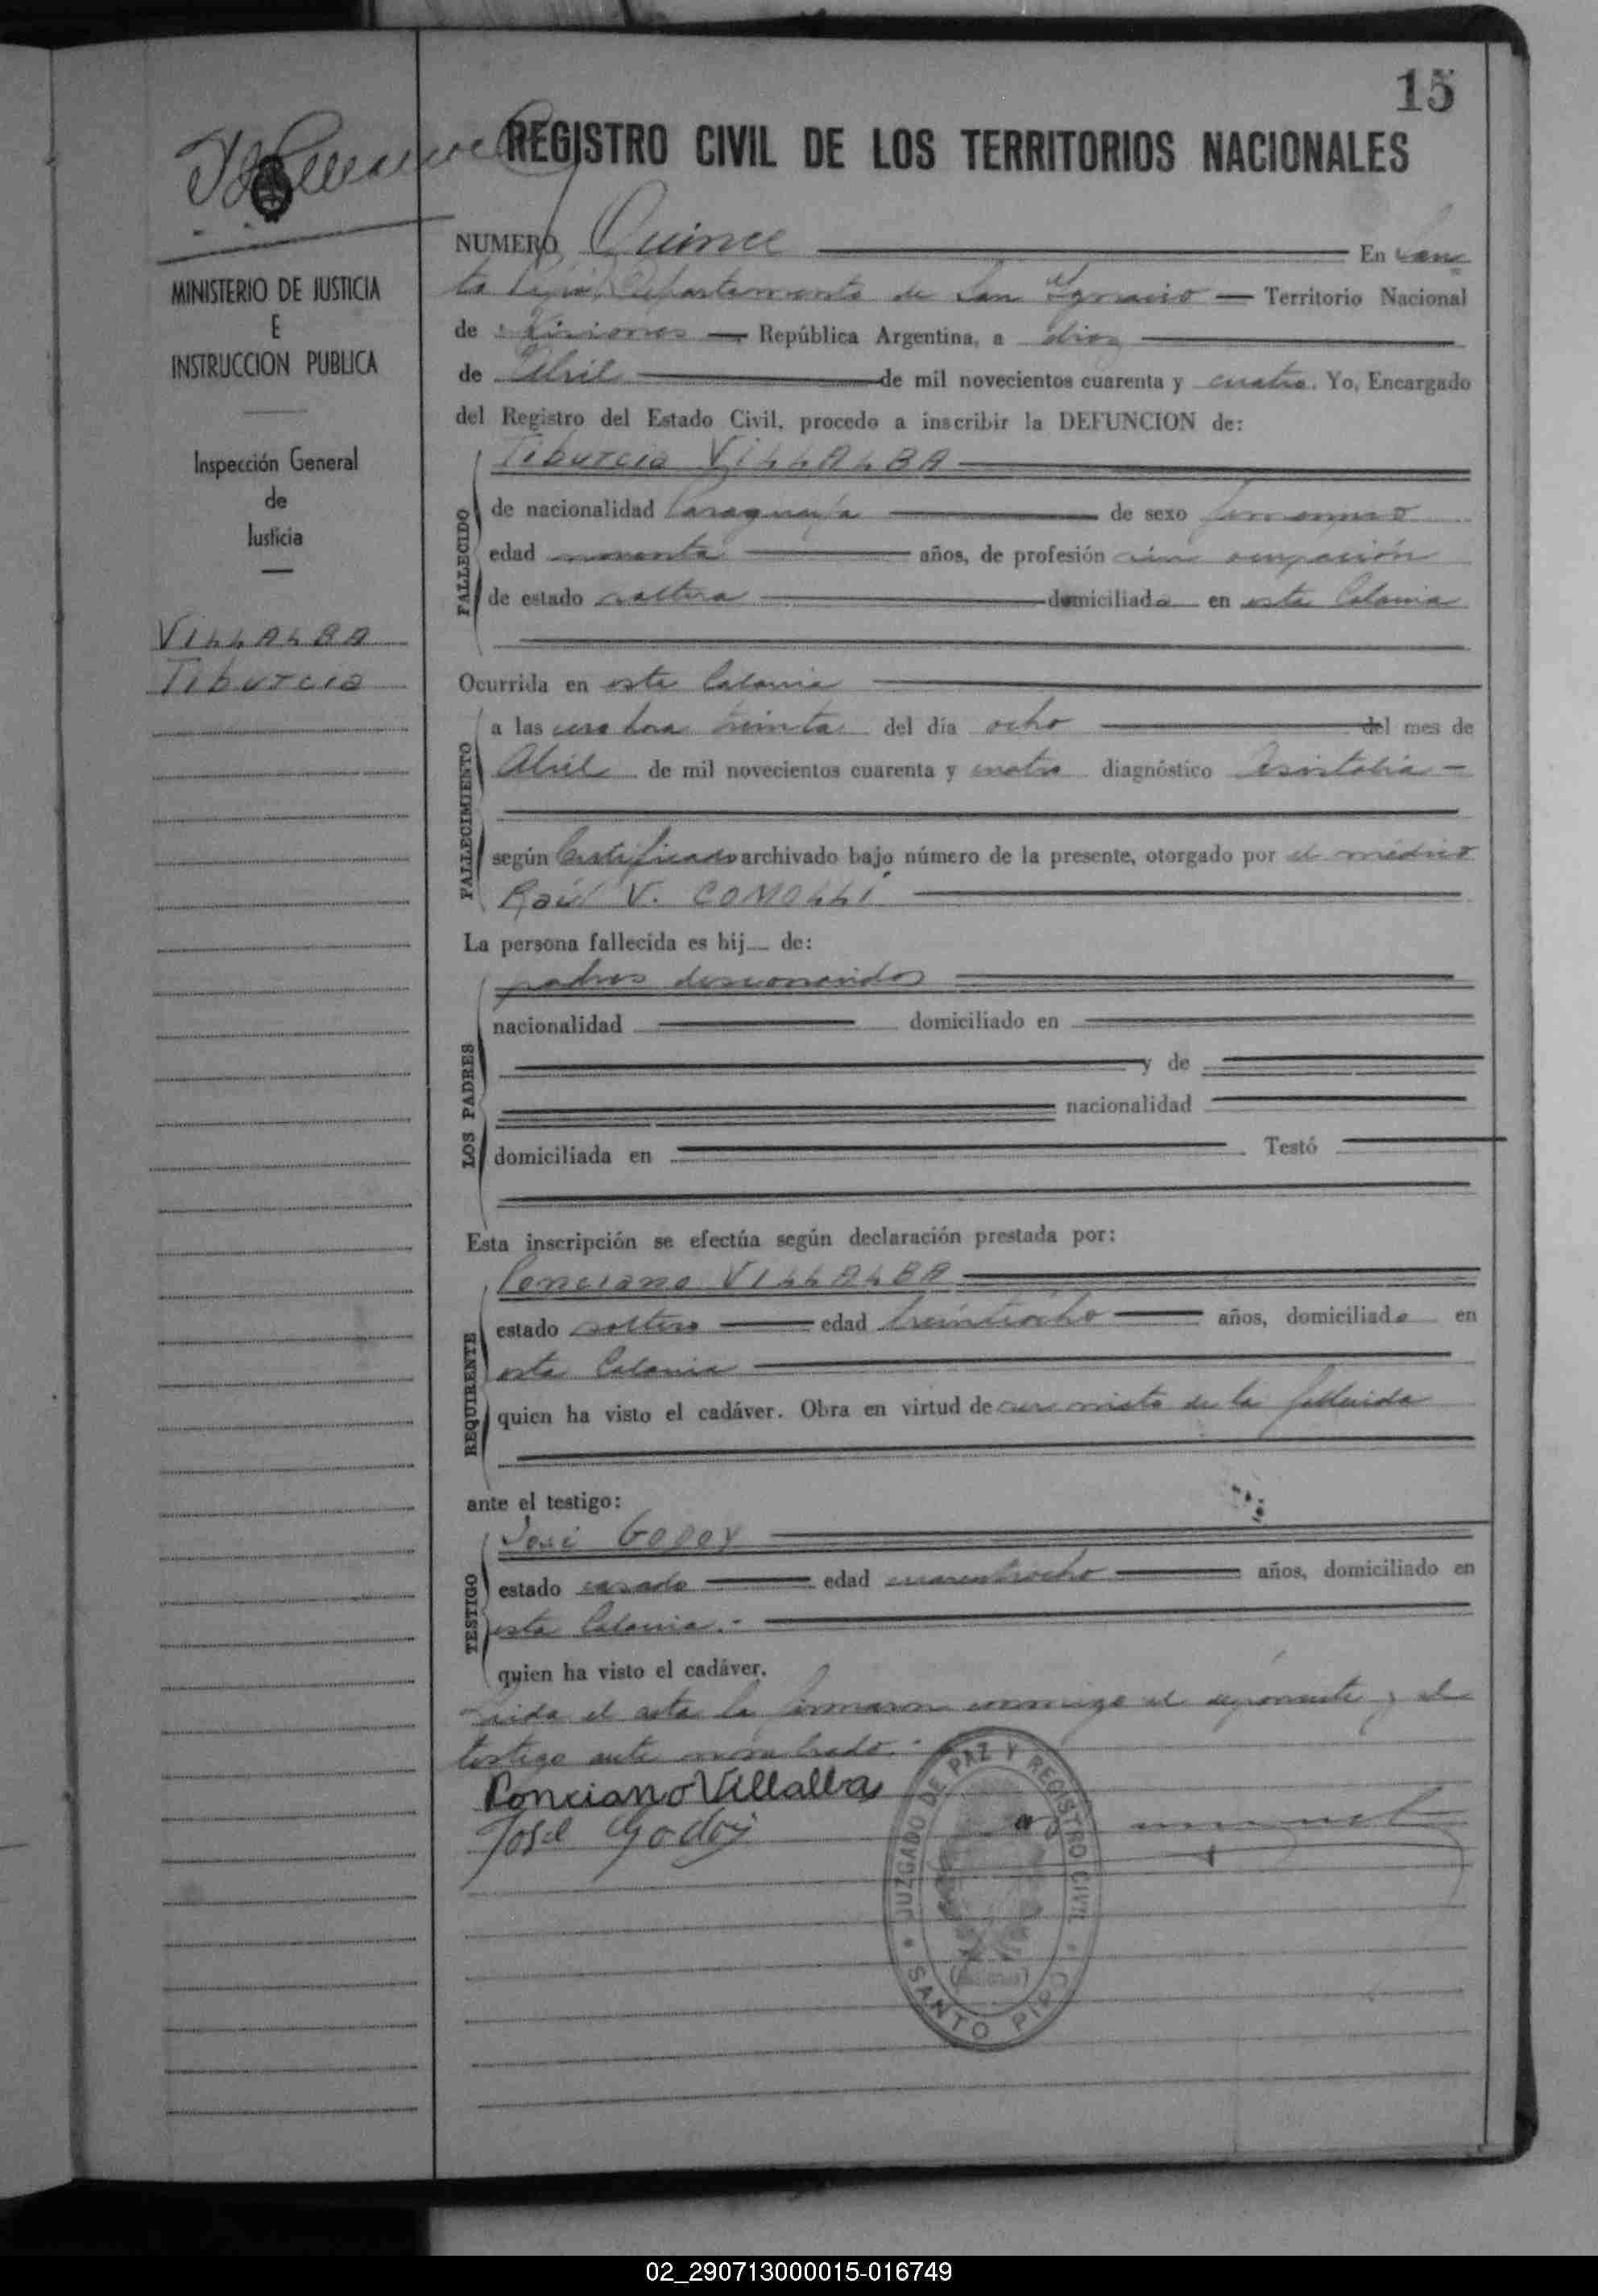 15
REGISTRO CIVIL DE LOS TERRITORIOS NACIONALES
MINISTERIO DE JUSTICIA
E
INSTRUCCION PUBLICA
Inspección General
de
Justicia
VILLALBA
Tiburcia
NUMERO Quince En San
to Pipó, Departamento de San Ignacio Territorio Nacional
de Misiones República Argentina, a diez
de Abril de mil novecientos cuarenta y cuatro. Yo, Encargado
del Registro del Estado Civil, procedo a inscribir la DEFUNCION de:
Tiburcia VILLALBA
FALLECIDO
de nacionalidad Paraguaya de sexo femenino
edad noventa años, de profesión sin ocupación
de estado soltera domiciliada en esta Colonia
Ocurrida en esta Colonia
FALLECIMIENTO
a las cero hora treinta del día ocho del mes de
Abril de mil novecientos cuarenta y cuatro diagnóstico Asistolia -
según Certificado archivado bajo número de la presente, otorgado por el médico
Raúl V. COMOLLI
La persona fallecida es hij de:
LOS PADRES
padres desconocidos
nacionalidad domiciliado en
y de
nacionalidad
domiciliada en Testó
Esta inscripción se efectúa según declaración prestada por:
REQUIRENTE
Ponciano VILLALBA
estado soltero edad treintiocho años, domiciliado en
esta Colonia
quien ha visto el cadáver. Obra en virtud de ser nieto de la fallecida
ante el testigo:
TESTIGO
José GODOY
estado casado edad cuarentiocho años, domiciliado en
esta Colonia.-
quien ha visto el cadáver.
Leida el acta la firmaron conmigo el exponente y el
testigo ante nombrado.-
Ponciano Villalba
José Godoy
JUZGADO DE PAZ Y REGISTRO CIVIL
SANTO PIPO
02_290713000015-016749